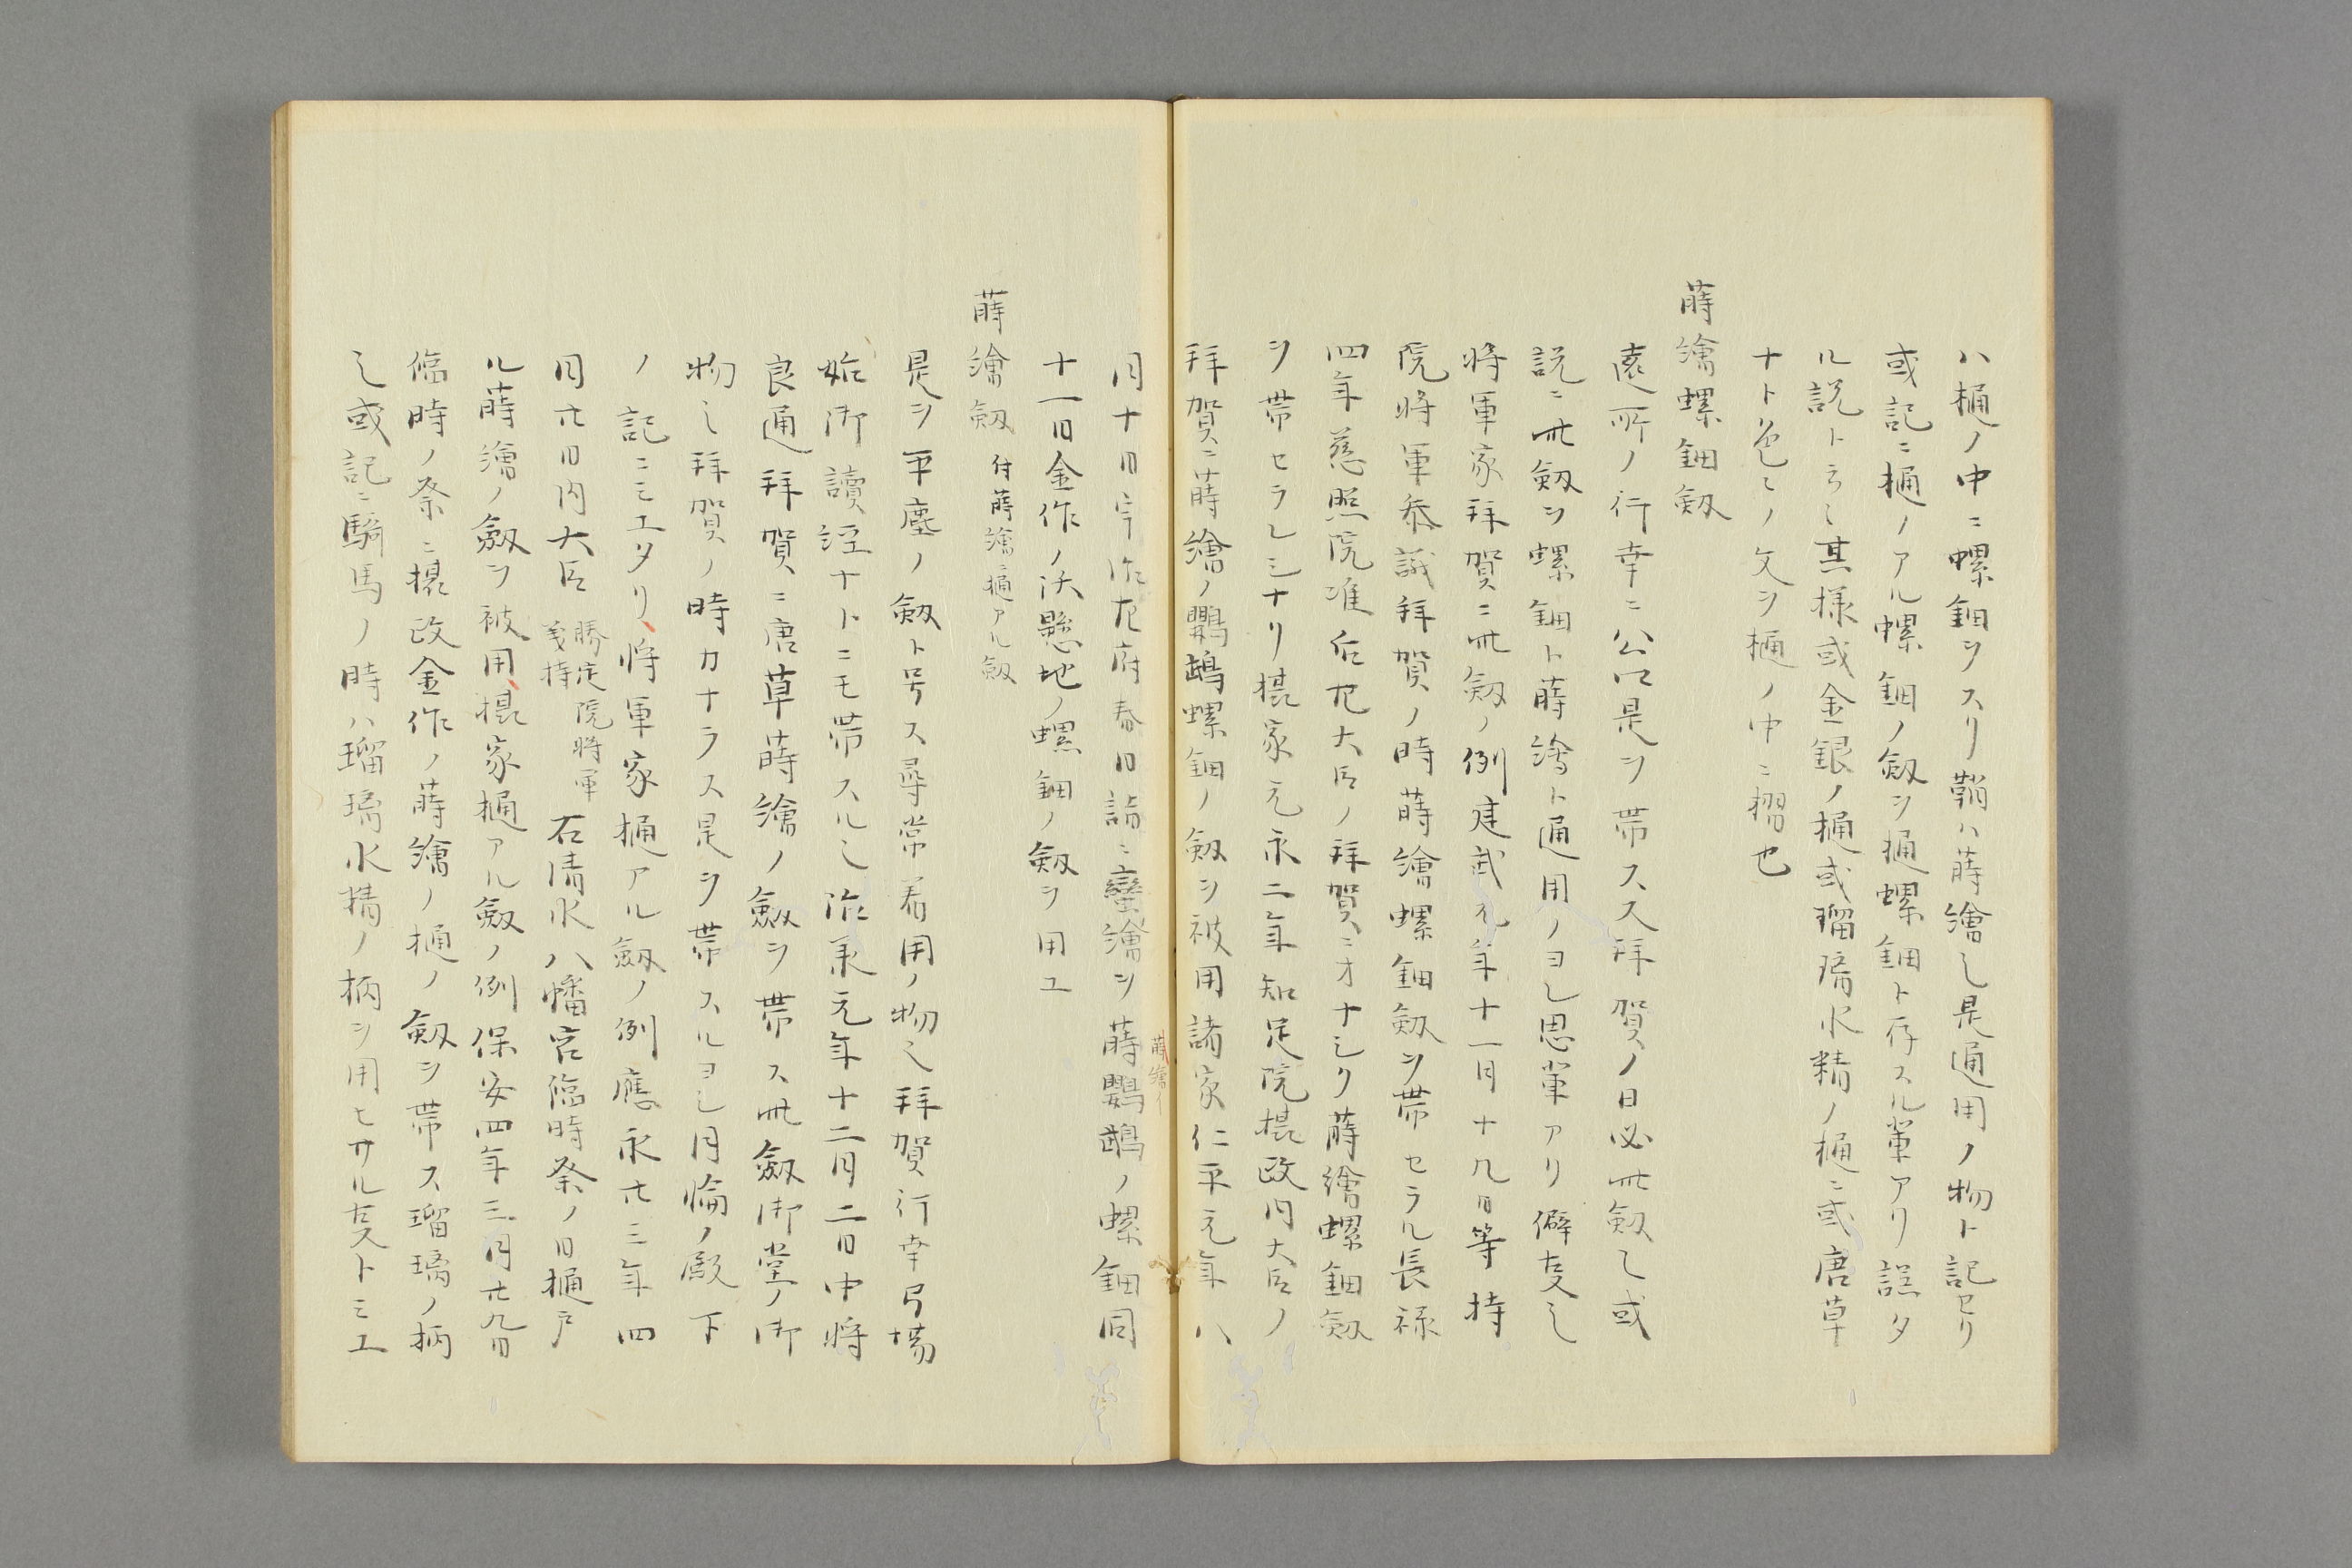 ハ樋ノ中ニ螺鈿ヲスリ鞘ハ蒔繪也是通用ノ物ト記セリ
或記ニ樋ノアル螺鈿ノ劔ヲ樋螺鈿ト存スル輩アリ誤タ
ル説ト云々其様或金銀ノ樋或瑠璃水精ノ樋ニ或唐草
ナト色々ノ文ヲ樋ノ中ニ摺也
蒔繪螺鈿劔
遠所ノ行幸ニ公卿是ヲ帯ス又拜賀ノ日必此劔也或
説ニ此劔ヲ螺鈿ト蒔繪ト通用ノヨシ思輩アリ僻事也
將軍家拜賀ニ此劔ノ例建武元年十一月十九日等持
院將軍参議拜賀ノ時蒔繪螺鈿劔ヲ帯セラル長禄
四年慈照院准后左大臣ノ拜賀ニオナシク蒔繪螺鈿劔
ヲ帯セラレシナリ摂家元永二年知足院摂政内大臣ノ
拜賀ニ蒔繪ノ鸚鵡螺鈿ノ劔ヲ被用諸家仁平元年八
月十日宇治左府春日詣ニ蠻繪ヲ蒔鸚鵡ノ螺鈿同
蒔繪イ
十一日金作ノ沃懸地ノ螺鈿ノ劔ヲ用ユ
蒔繪劔 付蒔繪ニ樋アル劔
是ヲ平塵ノ劔ト号ス尋常着用ノ物也拜賀行幸弓場
始御讀経ナトニモ帯スル也治承元年十二月二日中將
良通拜賀ニ唐草蒔繪ノ劔ヲ帯ス此劔御堂ノ御
物也拜賀ノ時カナラス是ヲ帯スルヨシ月輪ノ殿下
ノ記ニミエタリ將軍家樋アル劔ノ例應永廿三年四
月廿日内大臣 勝定院將軍義持 石清水八幡宮臨時祭ノ日樋戸
ル蒔繪ノ劔ヲ被用摂家樋アル劔ノ例保安四年三月廿九日
臨時ノ祭ニ摂政金作ノ蒔繪ノ樋ノ劔ヲ帯ス瑠璃ノ柄
也或記ニ騎馬ノ時ハ瑠璃水精ノ柄ヲ用ヒサル事トミエ